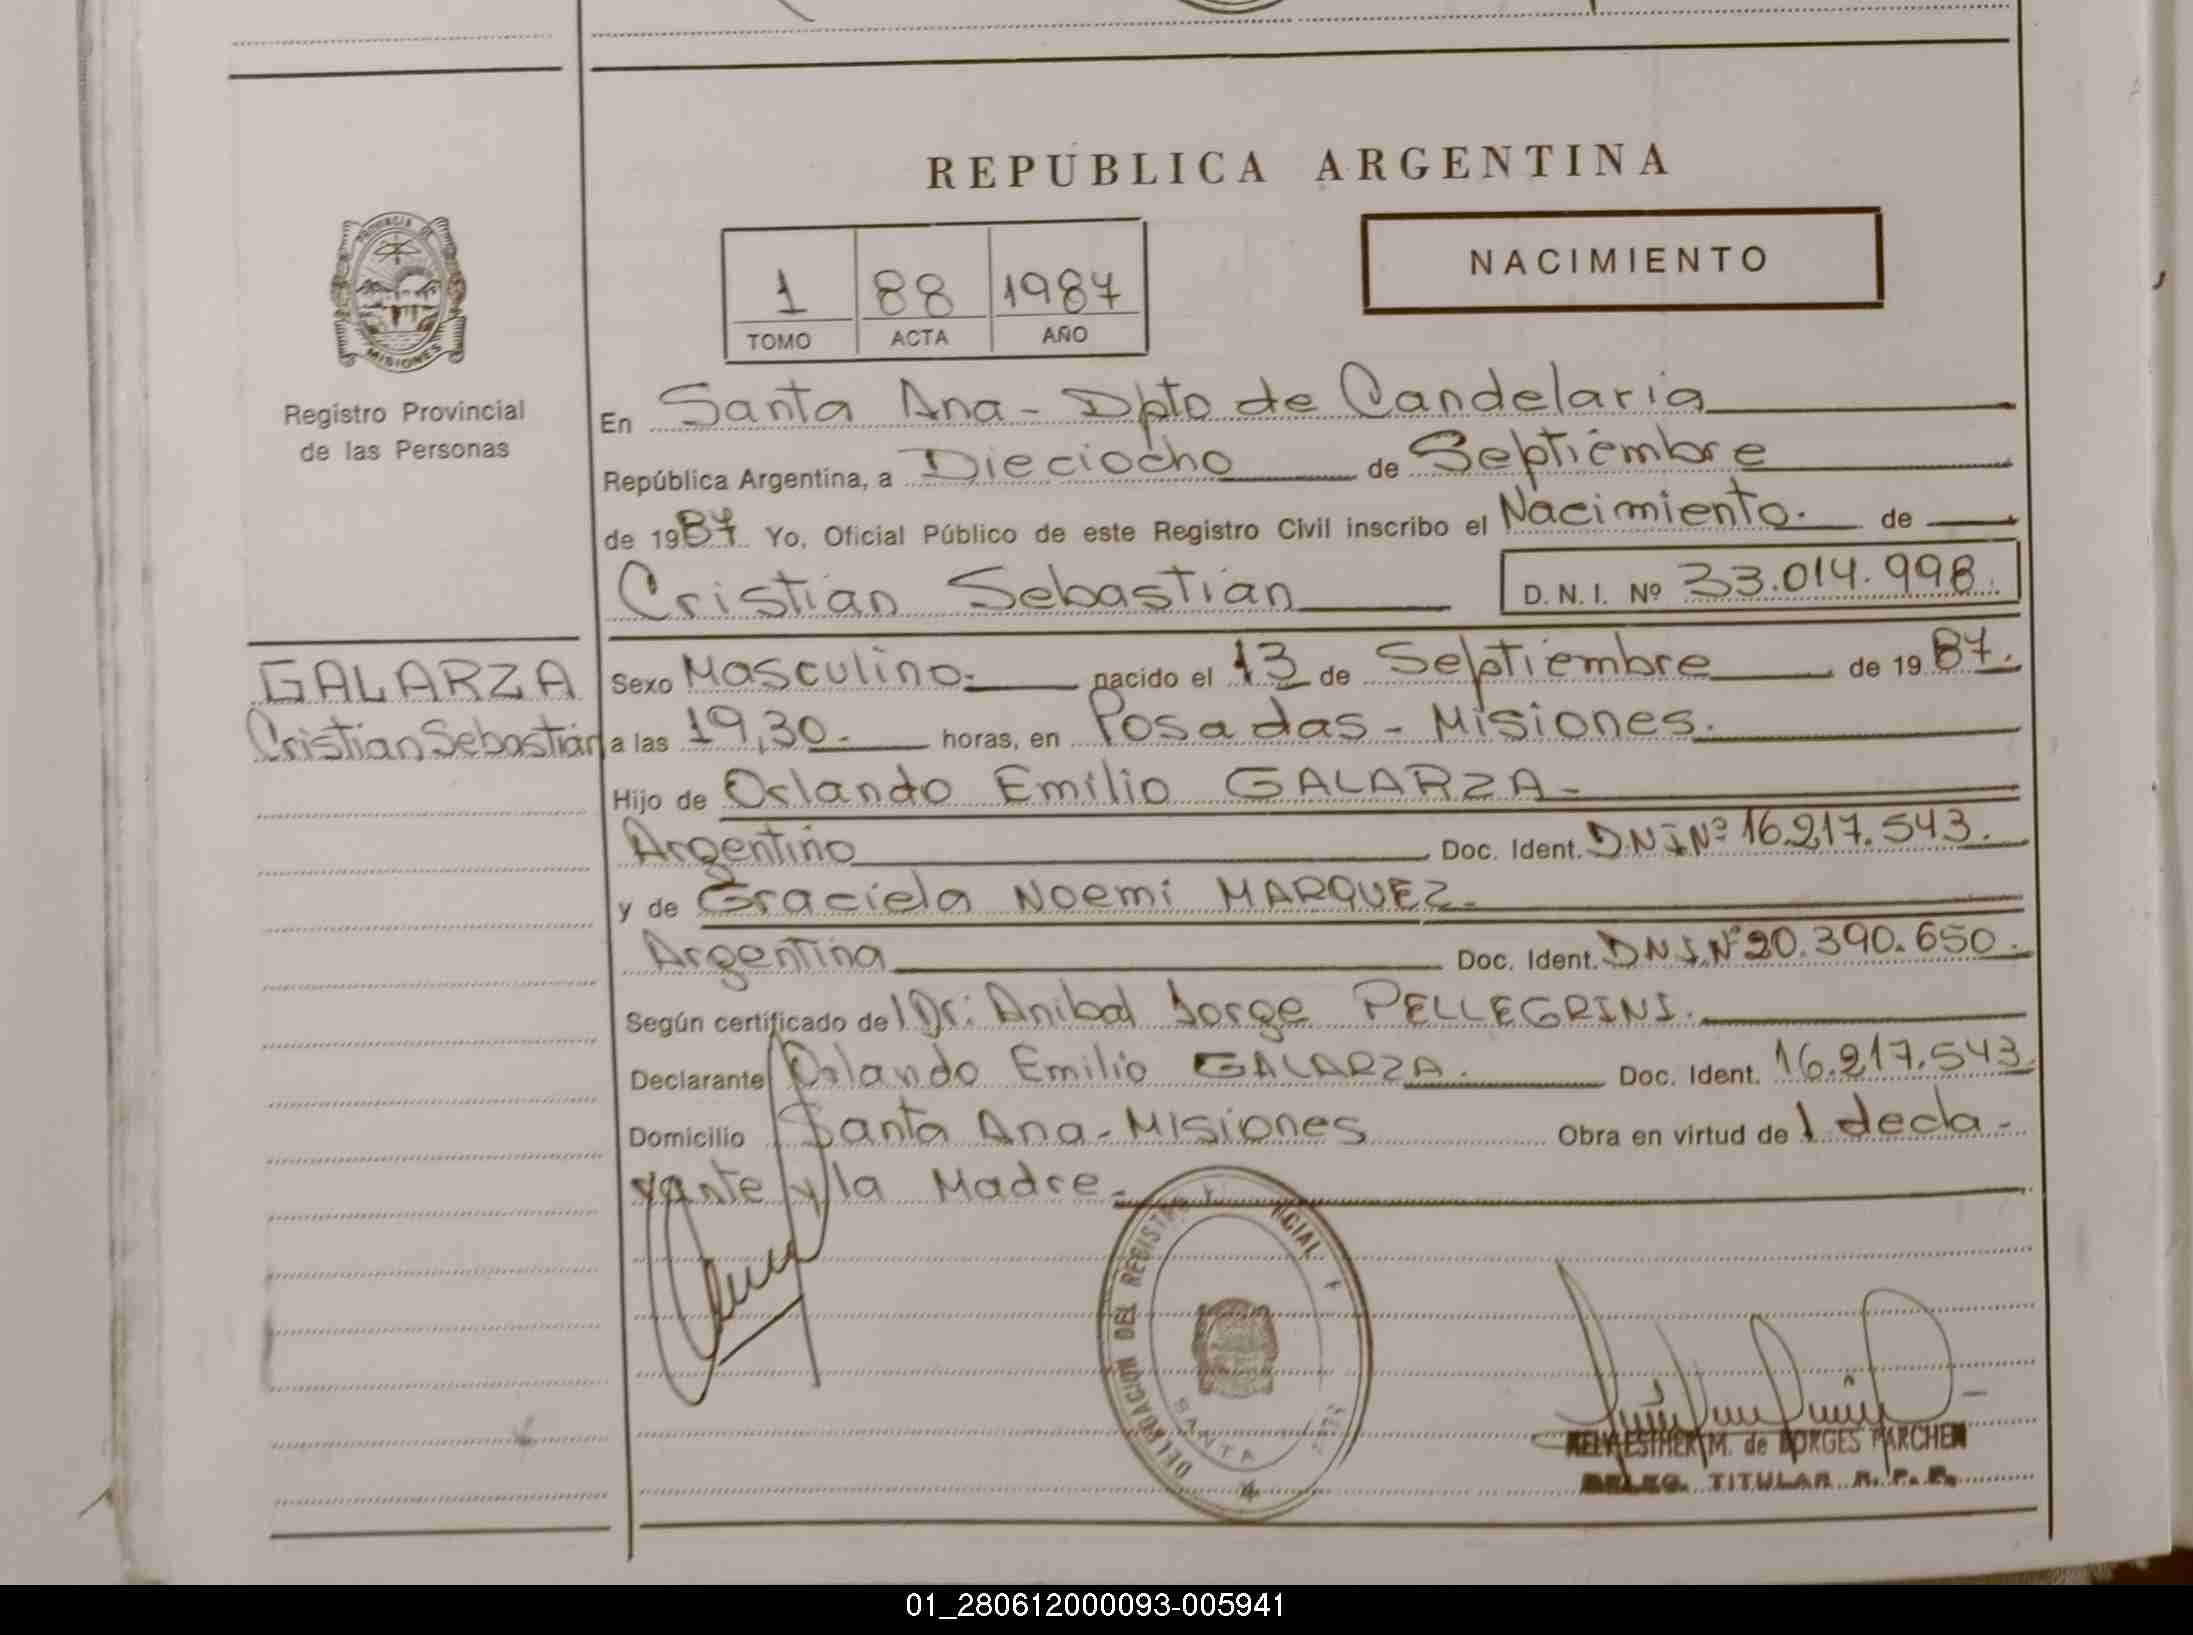 REPÚBLICA ARGENTINA
NACIMIENTO
1 88 1987
TOMO ACTA AÑO
PROVINCIA DE
MISIONES
Registro Provincial
de las Personas
GALARZA
Cristian Sebastián
En Santa Ana - Dpto de Candelaria
República Argentina, a Dieciocho de Septiembre
de 1987 Yo, Oficial Público de este Registro Civil inscribo el Nacimiento. de
Cristian Sebastian D. N. I. Nº 33.014.998.
Sexo Masculino. nacido el 13 de Septiembre de 1987.
a las 19,30. horas, en Posadas - Misiones.
Hijo de Orlando Emilio GALARZA -
Argentino Doc. Ident. DNI Nº 16.217.543.
y de Graciela Noemi MARQUEZ.
Argentina Doc. Ident. DNI.Nº 20.390.650.
Según certificado del Dr: Anibal Jorge PELLEGRINI.
Declarante Orlando Emilio GALARZA. Doc. Ident. 16.217.543
Domicilio Santa Ana - Misiones Obra en virtud de l decla-
rante y la Madre.
DELEGACION DEL REGISTRO
SANTA
ESTHER M. de BORGES PARCHEM
DELEG. TITULAR R. P. P.
01_280612000093-005941